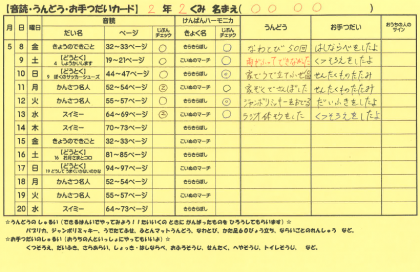 【音読・うんどう・お手つだいカード】 2年 2くみ 名まえ( 0 0 0 0 )
月 日 曜日 音読 けんばんハーモニカ うんどう お手つだい おうちの人のサイン
だい名 ページ じぶんチェック きょく名 じぶんチェック
5 8 金 きょうのできごと 32~33ページ ○ きらきらぼし ○ なわとび50回 はしならべをしたよ
9 土 【どうとく】 19~21ページ ○ こいぬのマーチ ○ くつそろえをしたよ
10 日 【どうとく】 44~47ページ ○ きらきらぼし ○ せんたくものたたみ
11 月 かんさつ名人 52~54ページ ② こいぬのマーチ ② せんたくものたたみ
12 火 かんさつ名人 55~57ページ ○ きらきらぼし ○ だいふきをしたよ
13 水 スイミー 64~69ページ ② こいぬのマーチ ○ ラジオ体そうをした くつそろえをしたよ
14 木 スイミー 70~73ページ きらきらぼし
15 金 きょうのできごと 32~33ページ こいぬのマーチ
16 土 【どうとく】 81~85ページ きらきらぼし
17 日 【どうとく】 94~97ページ こいぬのマーチ
18 月 かんさつ名人 52~54ページ きらきらぼし
19 火 かんさつ名人 55~57ページ こいぬのマーチ
20 水 スイミー 64~73ページ きらきらぼし
☆うんどうのしゅるい(できるはんいでやってみよう!!たいいくの ときに がんばったものを ひろうしてもらいます)☆
パプリカ、ジャンボリミッキー、うでたてふせ、ふとんマットうんどう、なわとび、かた足60びょう立ち、ならいごとのれんしゅう など。
☆お手つだいのしゅるい(おうちの人といっしょにやってもいいよ)☆
くつそろえ、だいふき、さらあらい、しょっき・はしならべ、おふろそうじ、せんたく、へやそうじ、トイレそうじ、 など。